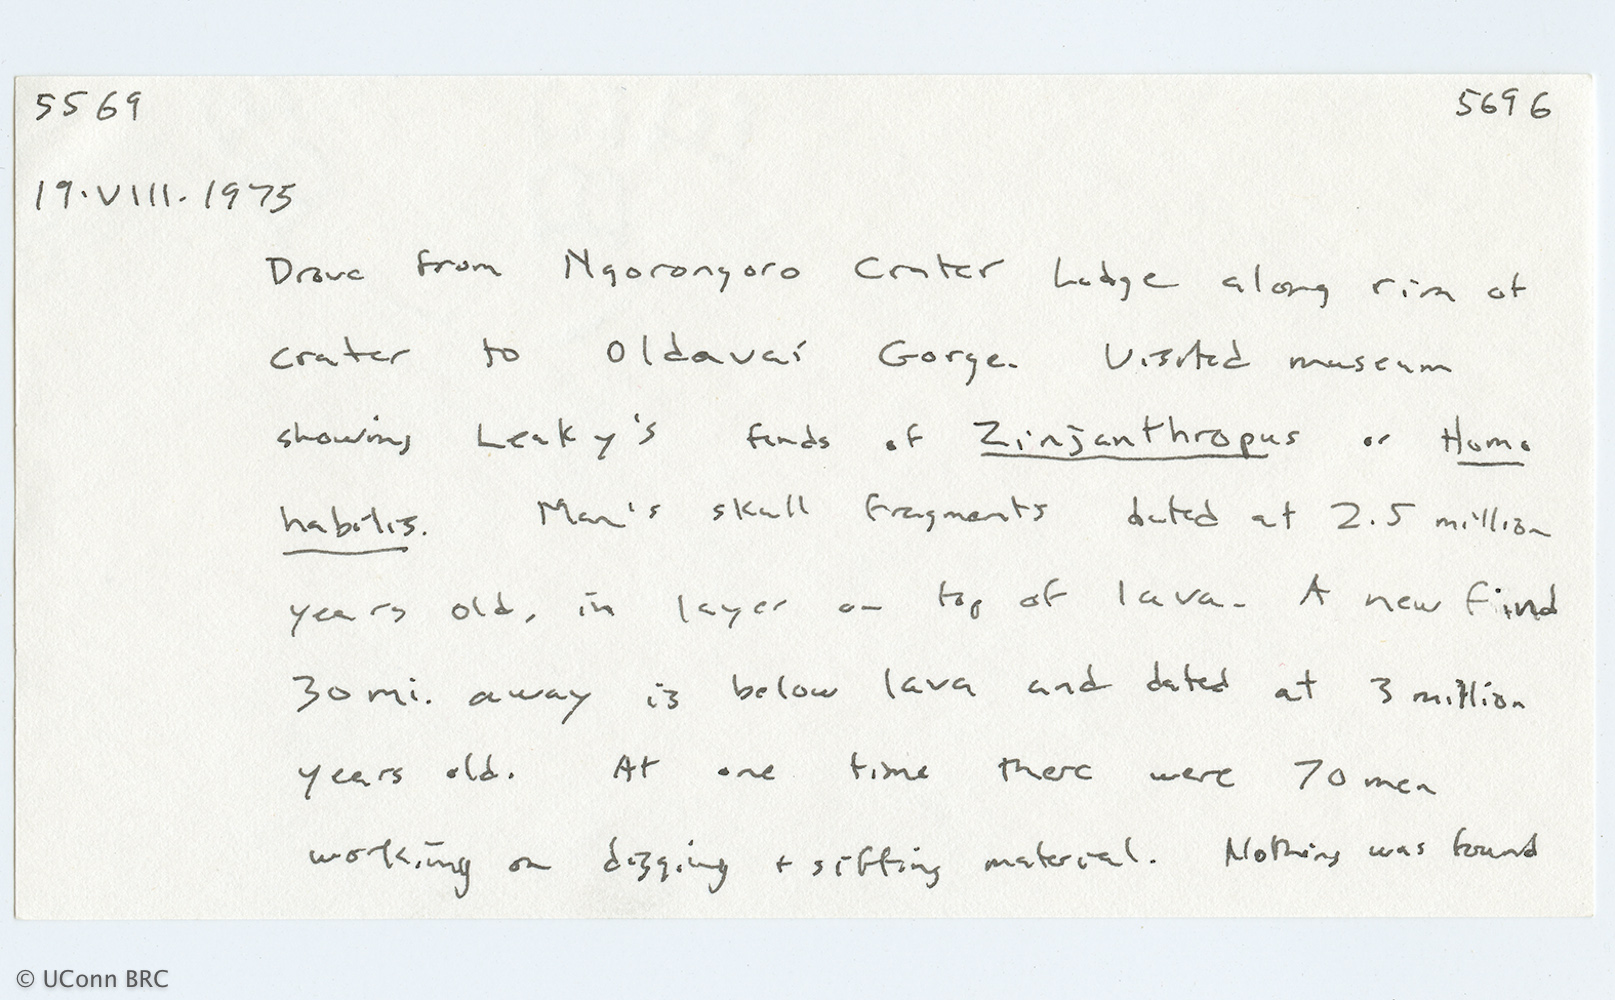 5569 5696
19.VIII.1975
Drove from Ngorongoro Crater Lodge along rim of
crater to Oldavai Gorge. Visited museum
showing Leaky's finds of Zinjanthropus or Homo
habilis. Man's skull fragments dated at 2.5 million
years old, in layer on top of lava. A new find
30 mi. away is below lava and dated at 3 million
years old. At one time there were 70 men
working on digging + sifting material. Nothing was found
© UConn BRC